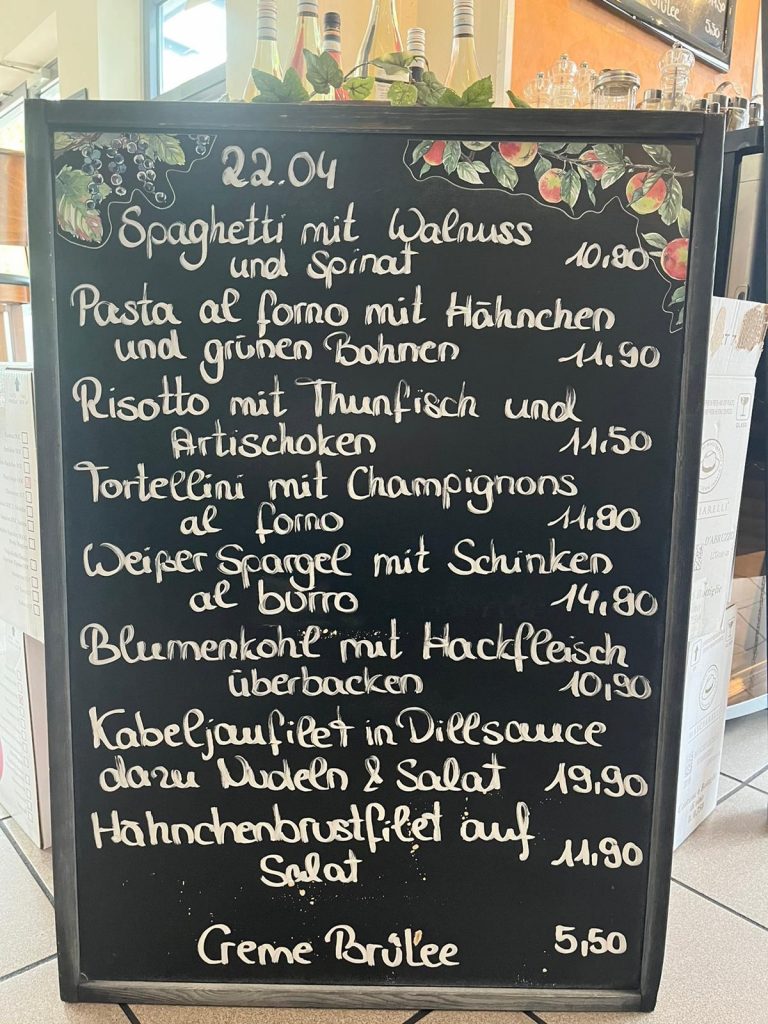 22.04
Spaghetti mit Walnuss
und Spinat 10,90
Pasta al forno mit Hähnchen
und grünen Bohnen 11,90
Risotto mit Thunfisch und
Artischoken 11,50
Tortellini mit Champignons
al forno 11,90
Weißer Spargel mit Schinken
al burro 14,90
Blumenkohl mit Hackfleisch
überbacken 10,90
Kabeljaufilet in Dillsauce
dazu Nudeln & Salat 19,90
Hähnchenbrustfilet auf
Salat 11,90
Creme Brûlée 5,50